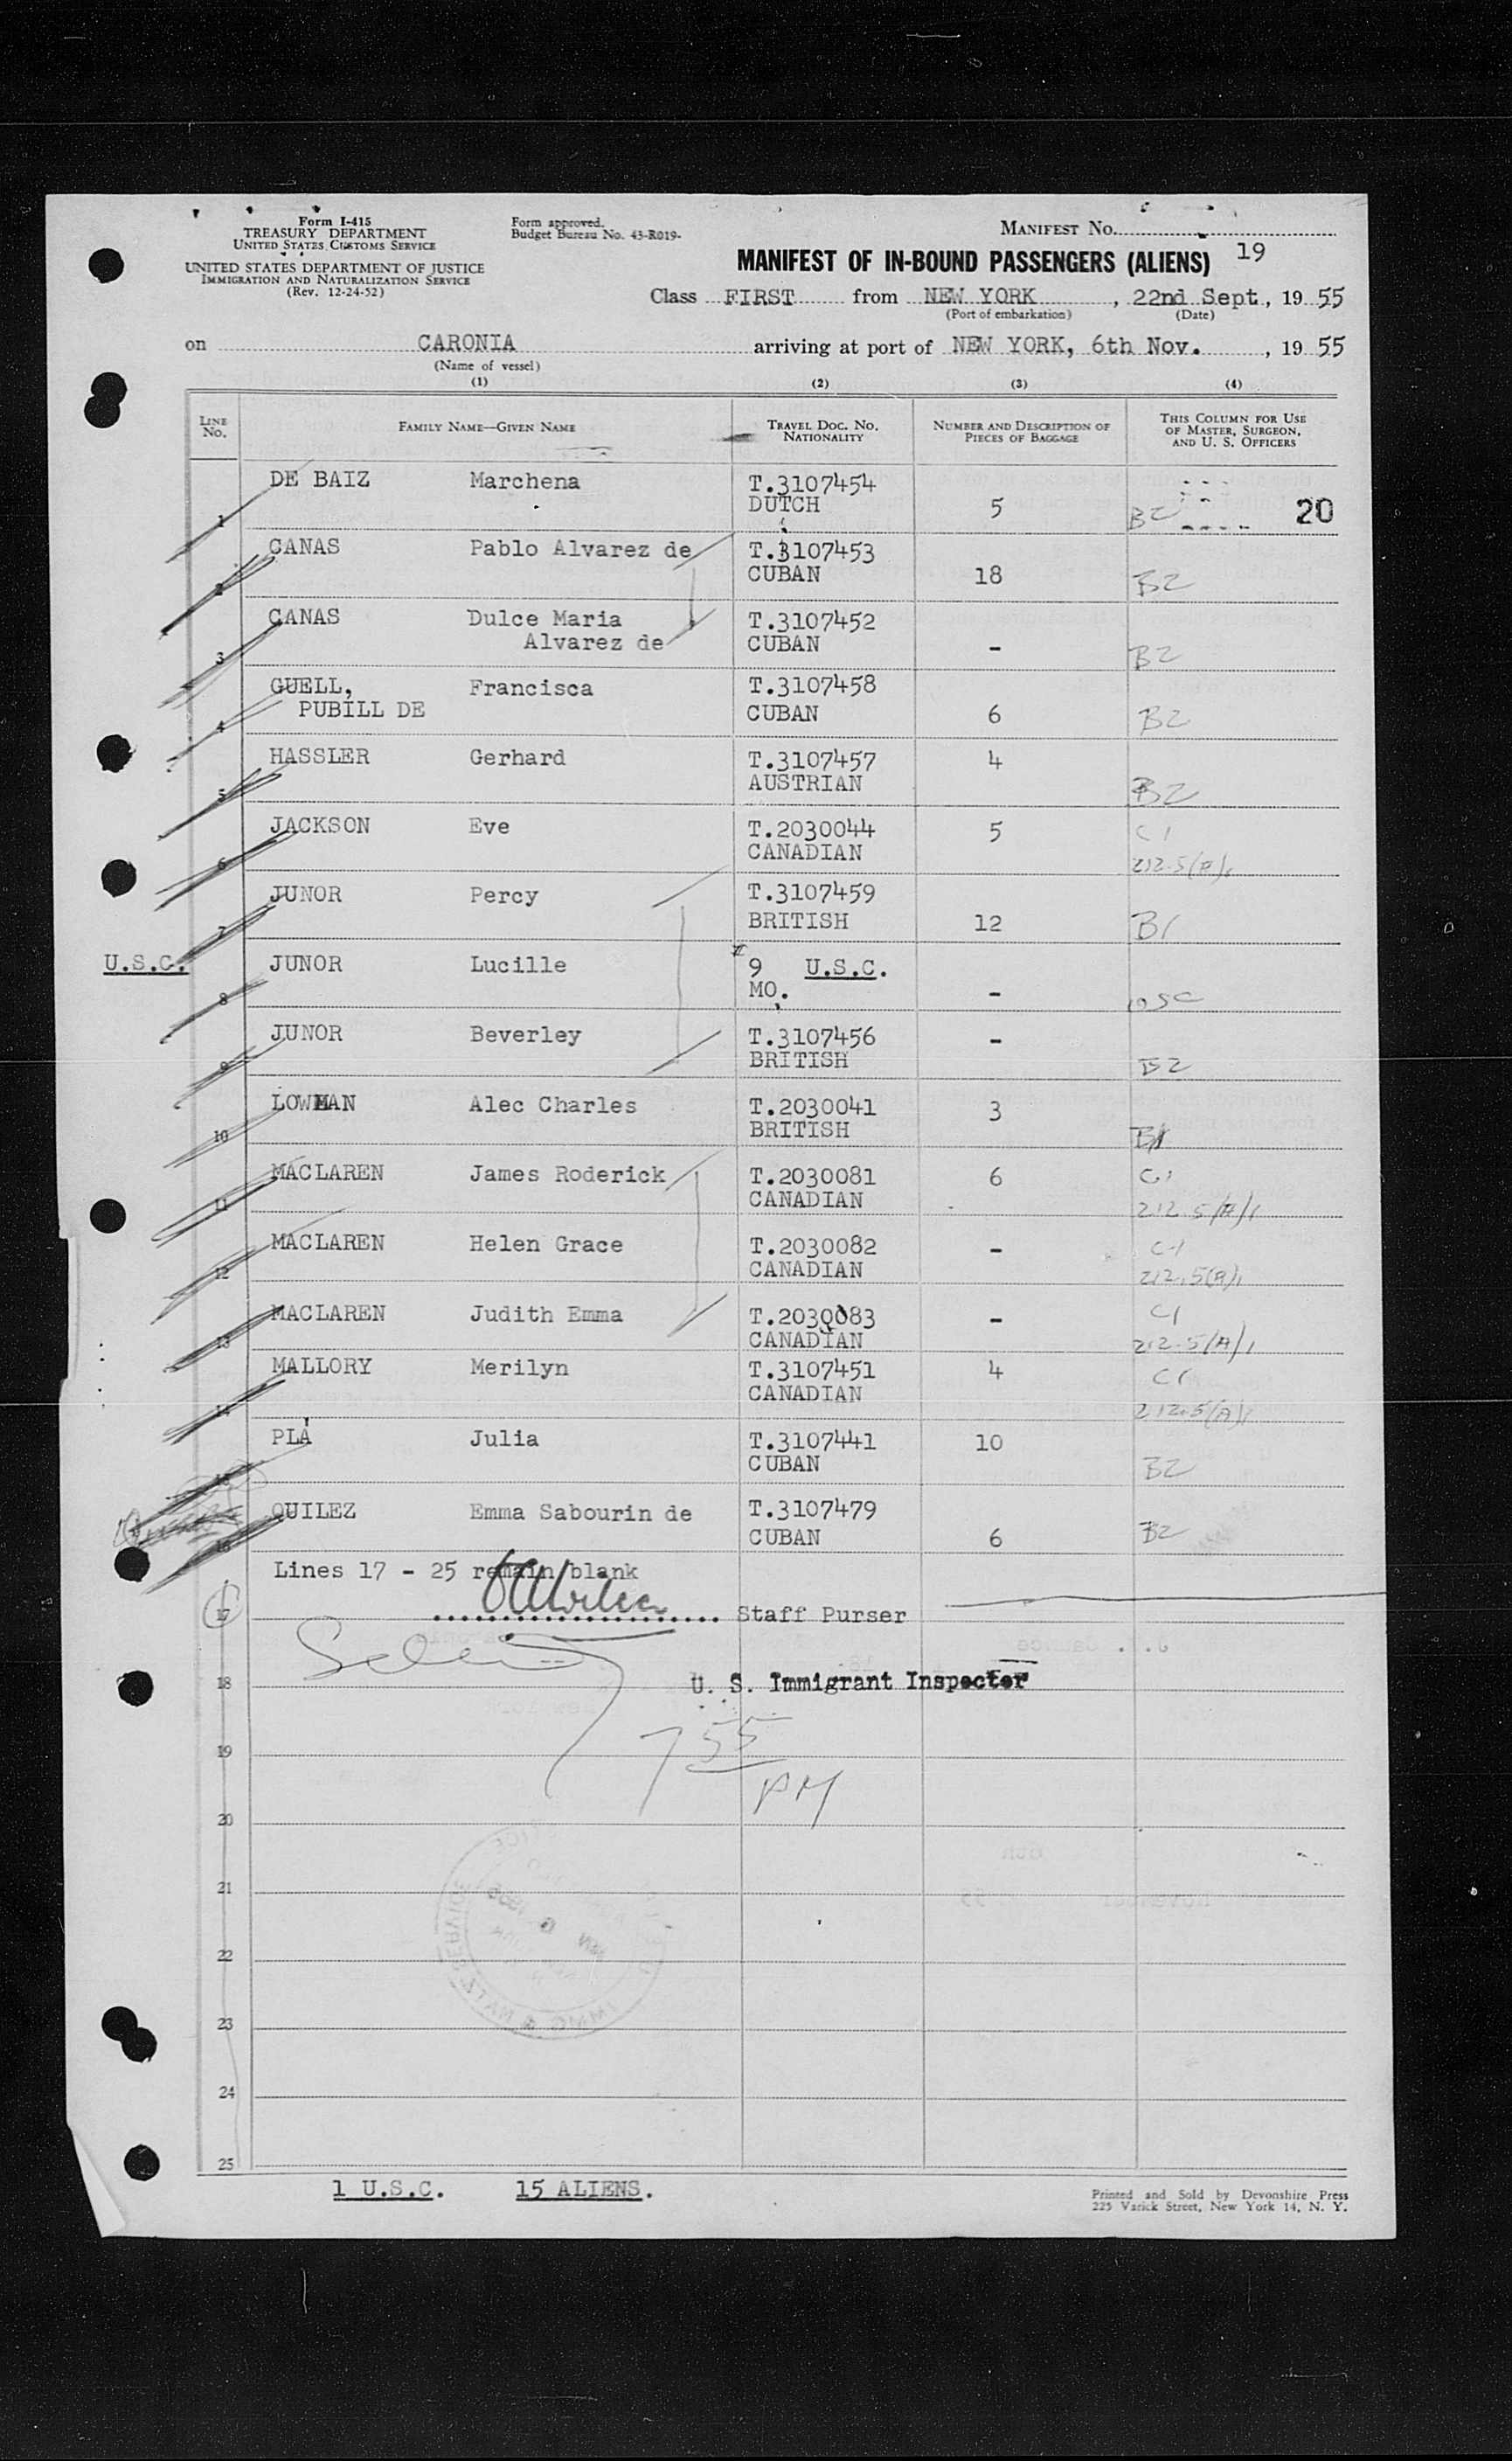 Form I-415
TREASURY DEPARTMENT
UNITED STATES CUSTOMS SERVICE
UNITED STATES DEPARTMENT OF JUSTICE
IMMIGRATION AND NATURALIZATION SERVICE
(Rev. 12-24-52)
Form approved.
Budget Bureau No. 43-R019-
MANIFEST No.
MANIFEST OF IN-BOUND PASSENGERS (ALIENS) 19
Class FIRST from NEW YORK, 22nd Sept, 19 55
(Port of embarkation) (Date)
on CARONIA arriving at port of NEW YORK, 6th Nov., 19 55
(Name of vessel)
(1) (2) (3) (4)
LINE No. FAMILY NAME—GIVEN NAME TRAVEL DOC. NO. NATIONALITY NUMBER AND DESCRIPTION OF PIECES OF BAGGAGE THIS COLUMN FOR USE OF MASTER, SURGEON, AND U. S. OFFICERS
1 DE BAIZ Marchena T.3107454 DUTCH 5 B2 20
2 CANAS Pablo Alvarez de T.3107453 CUBAN 18 B2
3 CANAS Dulce Maria Alvarez de T.3107452 CUBAN - B2
4 GUELL, PUBILL DE Francisca T.3107458 CUBAN 6 B2
5 HASSLER Gerhard T.3107457 AUSTRIAN 4 B2
6 JACKSON Eve T.2030044 CANADIAN 5 C1 212.5(A)1
7 JUNOR Percy T.3107459 BRITISH 12 B1
U.S.C. 8 JUNOR Lucille 9 MO. U.S.C. - USC
9 JUNOR Beverley T.3107456 BRITISH - B2
10 LOWMAN Alec Charles T.2030041 BRITISH 3 B1
11 MACLAREN James Roderick T.2030081 CANADIAN 6 C1 212.5(A)1
12 MACLAREN Helen Grace T.2030082 CANADIAN - C1 212.5(A)1
13 MACLAREN Judith Emma T.2030083 CANADIAN - C1 212.5(A)1
14 MALLORY Merilyn T.3107451 CANADIAN 4 C1 212.5(A)1
15 PLÁ Julia T.3107441 CUBAN 10 B2
16 QUILEZ Emma Sabourin de T.3107479 CUBAN 6 B2
Lines 17 - 25 remain blank
17 Staff Purser
18 U. S. Immigrant Inspector
19 7 55
PM
20
21
22
23
24
25
1 U.S.C. 15 ALIENS.
Printed and Sold by Devonshire Press
225 Varick Street, New York 14, N. Y.